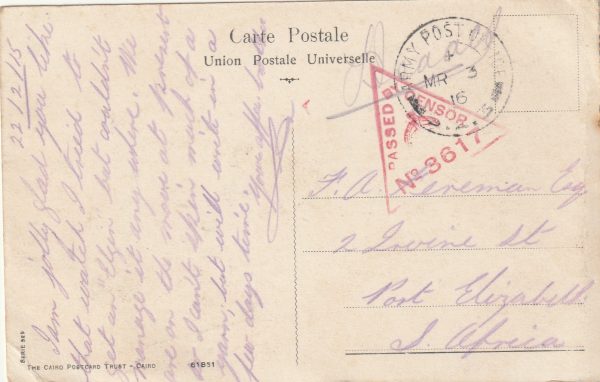 Carte Postale
Union Postale Universelle
ARMY POST OFFICE
4
MR 3
16
PASSED BY CENSOR
No 3617
22/2/15
I am jolly glad you like
that watch I tried to
get an but couldn't
manage it anywhere. We
are on the move at present
so I can't spin much of a
yarn, but will write in a
few days time.
Your affec brother
F. A. Esq
2 Irvine St
Port Elizabeth
S. Africa
SERIE 929
THE CAIRO POSTCARD TRUST - CAIRO
61851